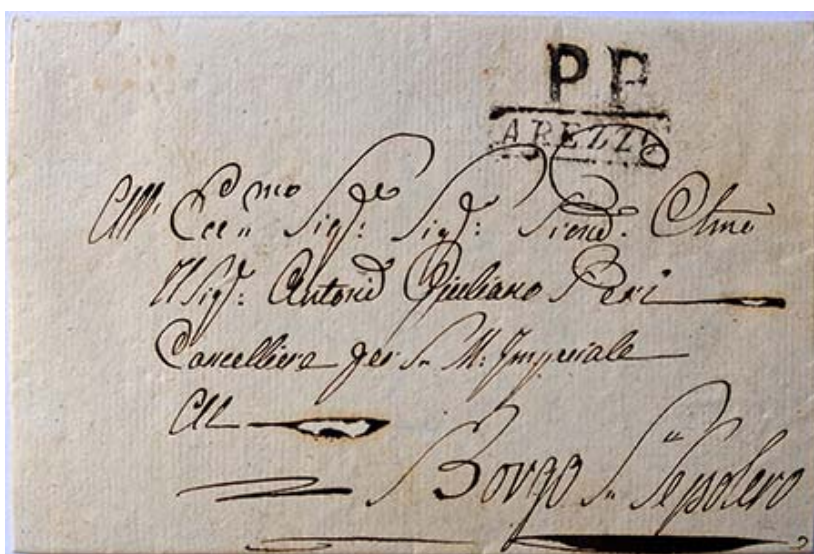 P P
AREZZO
All' Ecc.mo Sigre: Sigre: Siend. Clmo
Il Sigr: Antonio Giuliano Peri
Cancelliere per S. M: Imperiale
All
Borgo S. Sepolcro